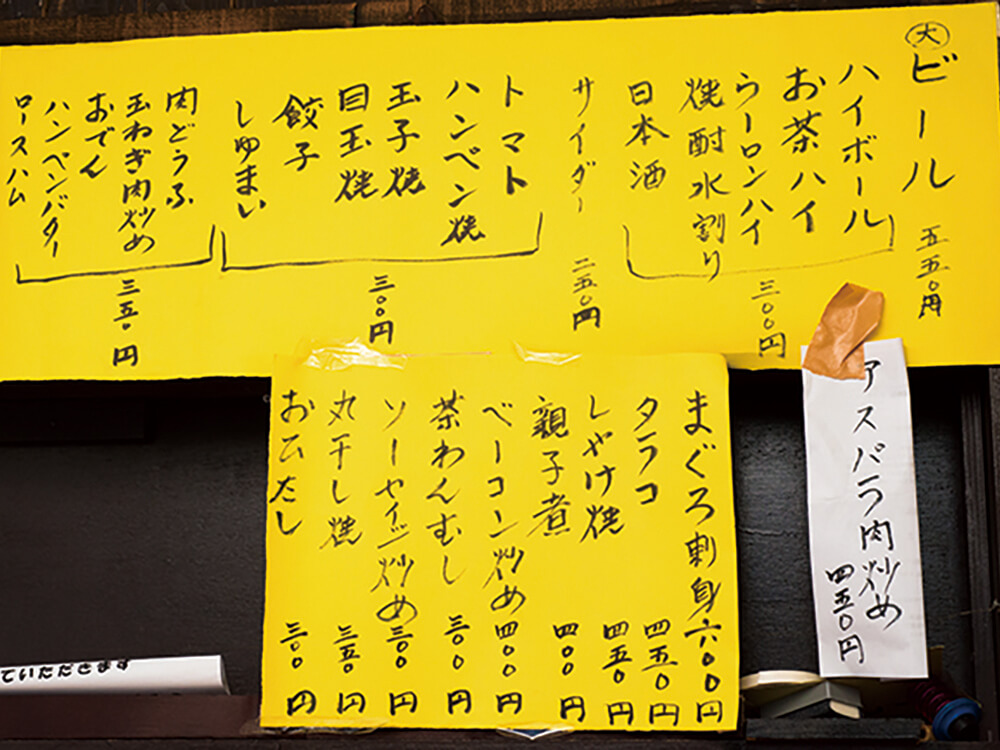 大
ビール 五五〇円
ハイボール
お茶ハイ
ウーロンハイ
焼酎水割り
日本酒
三〇〇円
サイダー 二五〇円
トマト
ハンペン焼
玉子焼
目玉焼
餃子
しゅまい
三〇〇円
肉どうふ
玉ねぎ肉炒め
おでん
ハンペンバター
ロースハム
三五〇円
まぐろ刺身 六〇〇円
タラコ 四五〇円
しゃけ焼 四五〇円
親子煮 四〇〇円
ベーコン炒め 四〇〇円
茶わんむし 三〇〇円
ソーセイジ炒め 三〇〇円
丸干し焼 三五〇円
おひたし 三〇〇円
アスパラ肉炒め
四五〇円
ていただきます